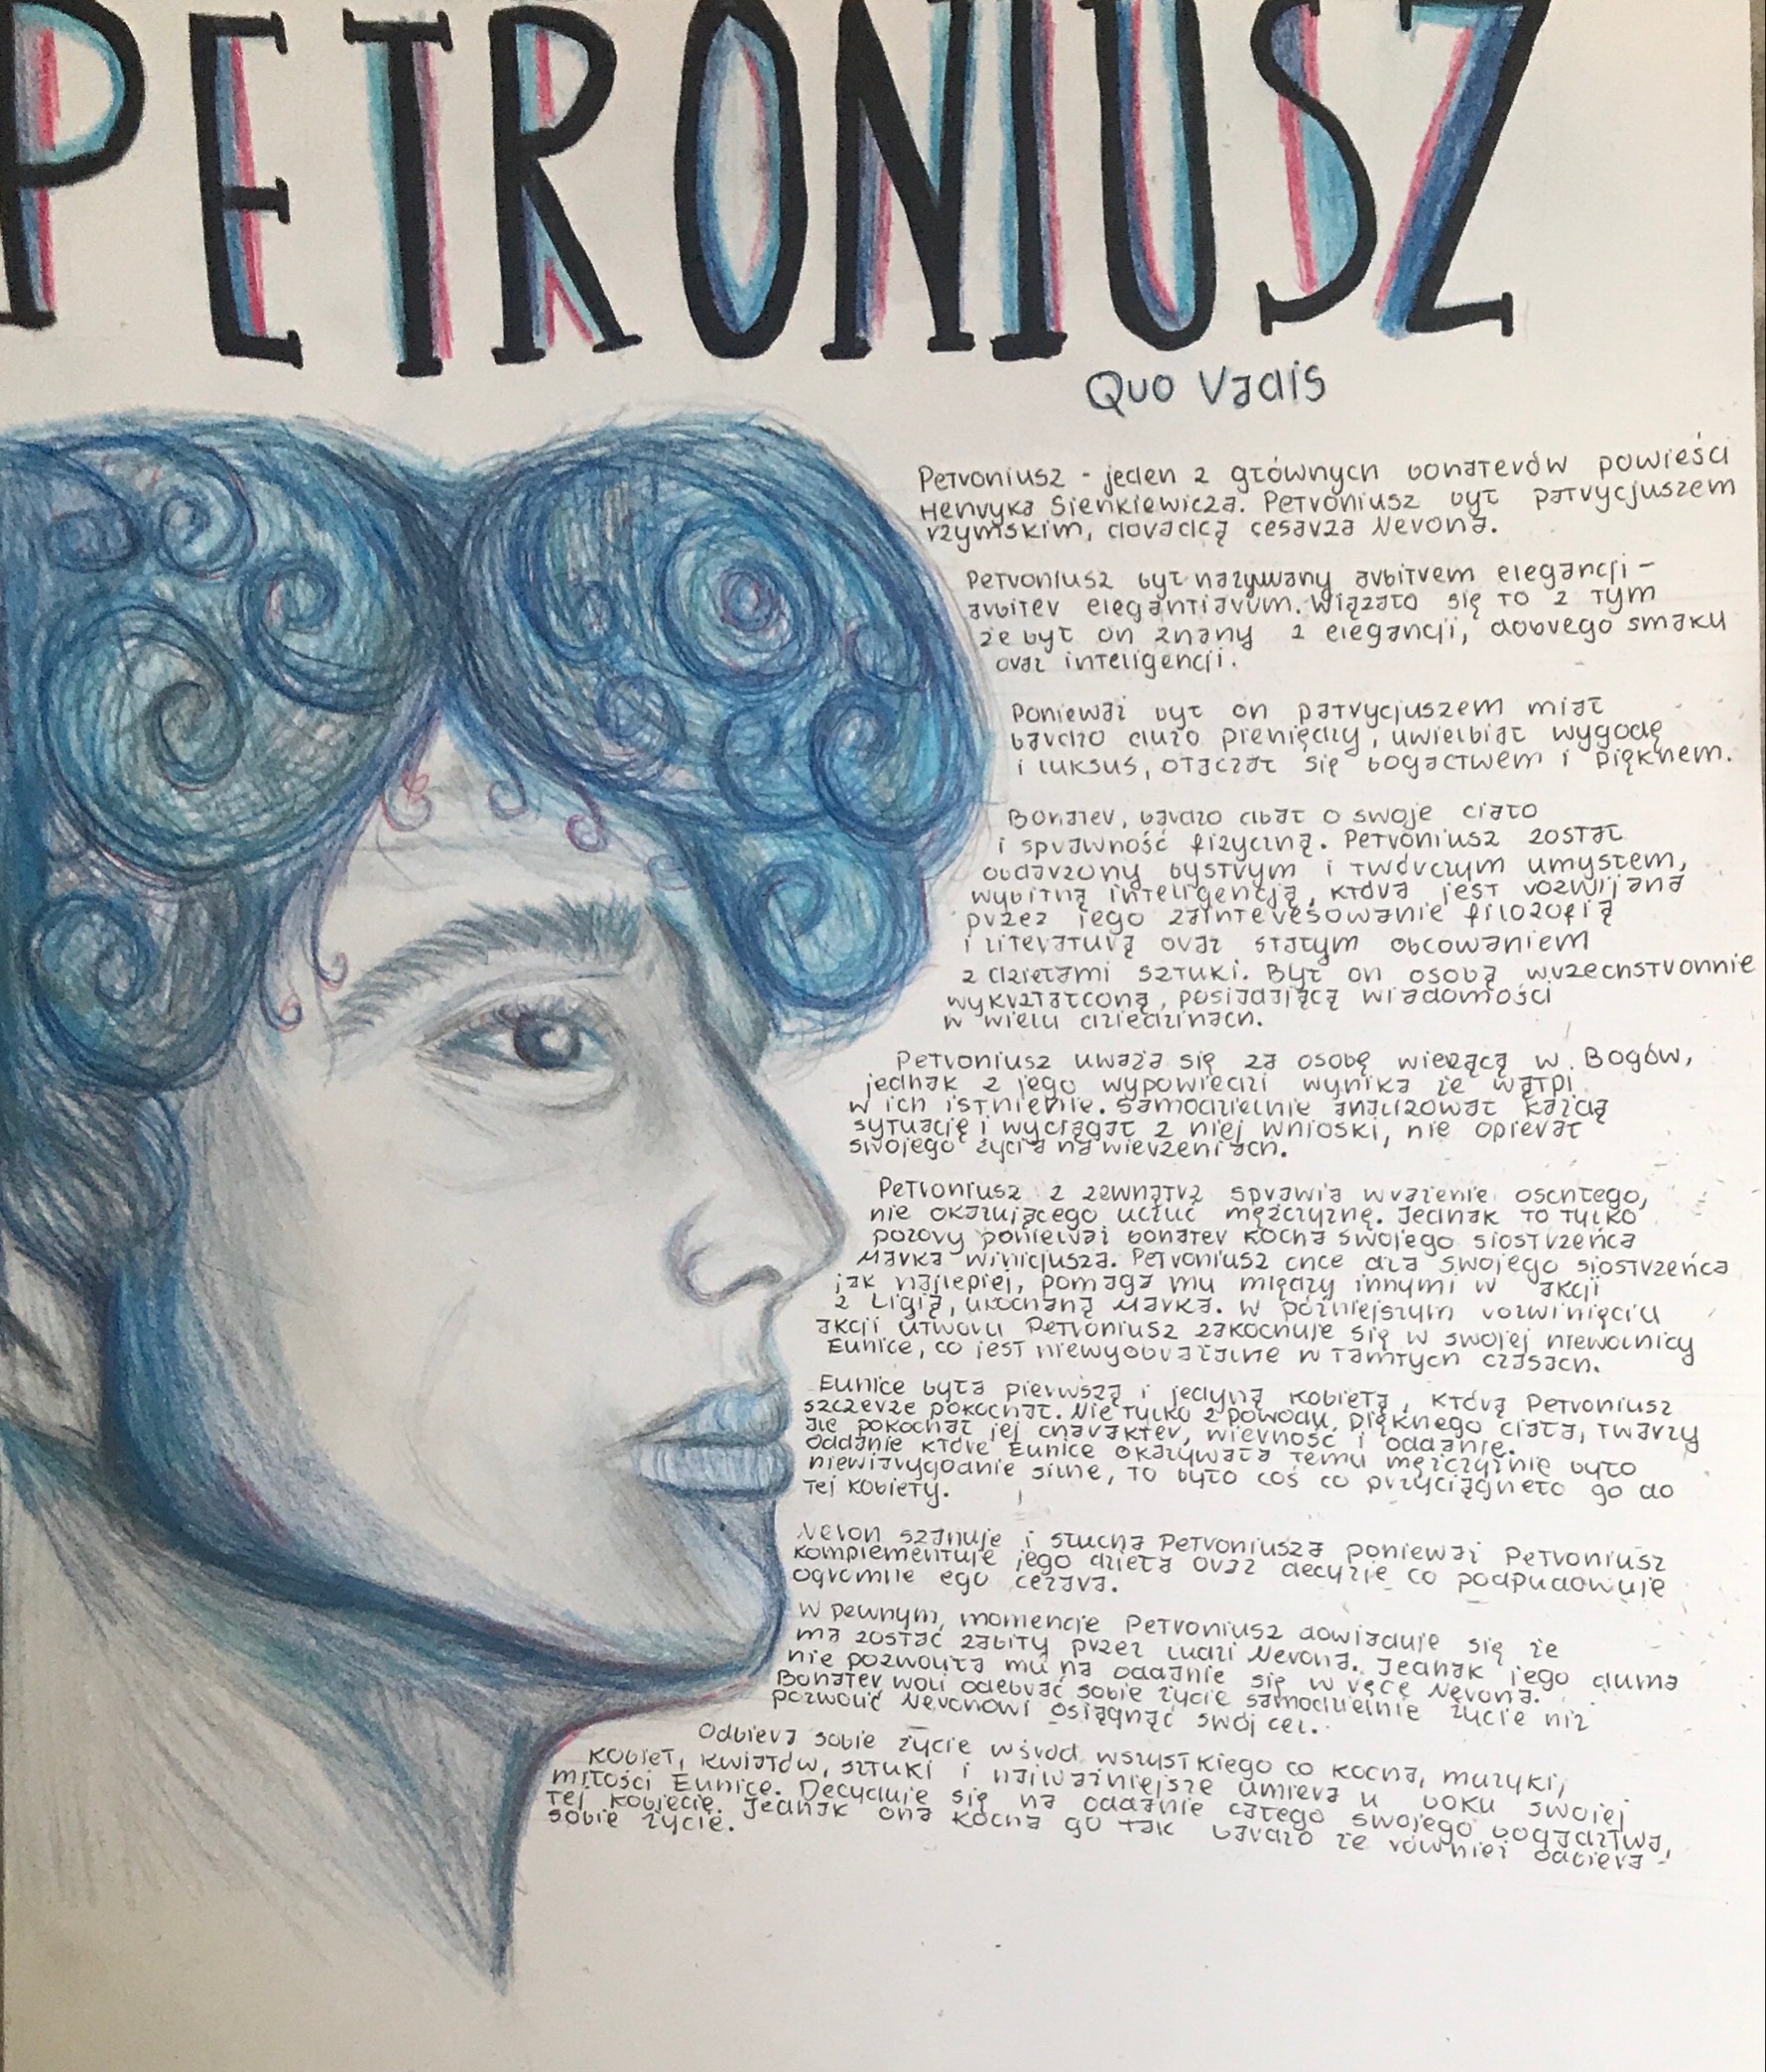 PETRONIUSZ
Quo Vadis
Petroniusz - jeden z głównych bohaterów powieści
Henryka Sienkiewicza. Petroniusz był patrycjuszem
rzymskim, doradcą cesarza Nerona.
Petroniusz był nazywany arbitrem elegancji -
arbiter elegantiarum. Wiązało się to z tym
że był on znany z elegancji, dobrego smaku
oraz inteligencji.
Ponieważ był on patrycjuszem miał
bardzo dużo pieniędzy, uwielbiał wygodę
i luksus, otaczał się bogactwem i pięknem.
Bohater, bardzo dbał o swoje ciało
i sprawność fizyczną. Petroniusz został
obdarzony bystrym i twórczym umysłem,
wybitną inteligencją, która jest rozwijana
przez jego zainteresowanie filozofią
i literaturą oraz stałym obcowaniem
z dziełami sztuki. Był on osobą wrzechstronnie
wykształconą, posiadającą wiadomości
w wielu dziedzinach.
Petroniusz uważa się za osobę wierzącą w Bogów,
jednak z jego wypowiedzi wynika że wątpi
w ich istnienie. Samodzielnie analizował każdą
sytuację i wyciągał z niej wnioski, nie opierał
swojego życia na wierzeniach.
Petroniusz z zewnątrz sprawia wrażenie oschłego,
nie okazującego uczuć mężczyznę. Jednak to tylko
pozory ponieważ bohater kocha swojego siostrzeńca
Marka Winicjusza. Petroniusz chce dla swojego siostrzeńca
jak najlepiej, pomaga mu między innymi w akcji
z Ligią, ukochaną Marka. W późniejszym rozwinięciu
akcji utworu Petroniusz zakochuje się w swojej niewolnicy
Eunice, co jest niewyobrażalne w tamtych czasach.
Eunice była pierwszą i jedyną kobietą, którą Petroniusz
szczerze pokochał. Nie tylko z powodu pięknego ciała, twarzy
ale pokochał jej charakter, wierność i oddanie.
Oddanie które Eunice okazywała temu mężczyźnie było
niewiarygodnie silne, to było coś co przyciągnęło go do
tej kobiety.
Neron szanuje i słucha Petroniusza ponieważ Petroniusz
komplementuje jego dzieła oraz decyzje co podpudowuje
ogromne ego cezara.
W pewnym momencie Petroniusz dowiaduje się że
ma zostać zabity przez ludzi Nerona. Jednak jego duma
nie pozwoliła mu na oddanie się w ręce Nerona.
Bohater woli odebrać sobie życie samodzielnie życie niż
pozwolić Neronowi osiągnąć swój cel.
Odbiera sobie życie wśród wszystkiego co kocha, muzyki,
kobiet, kwiatów, sztuki i najważniejsze umiera u boku swojej
miłości Eunice. Decyduje się na oddanie całego swojego bogactwa,
tej kobiecie. Jednak ona kocha go tak bardzo że również odbiera
sobie życie.